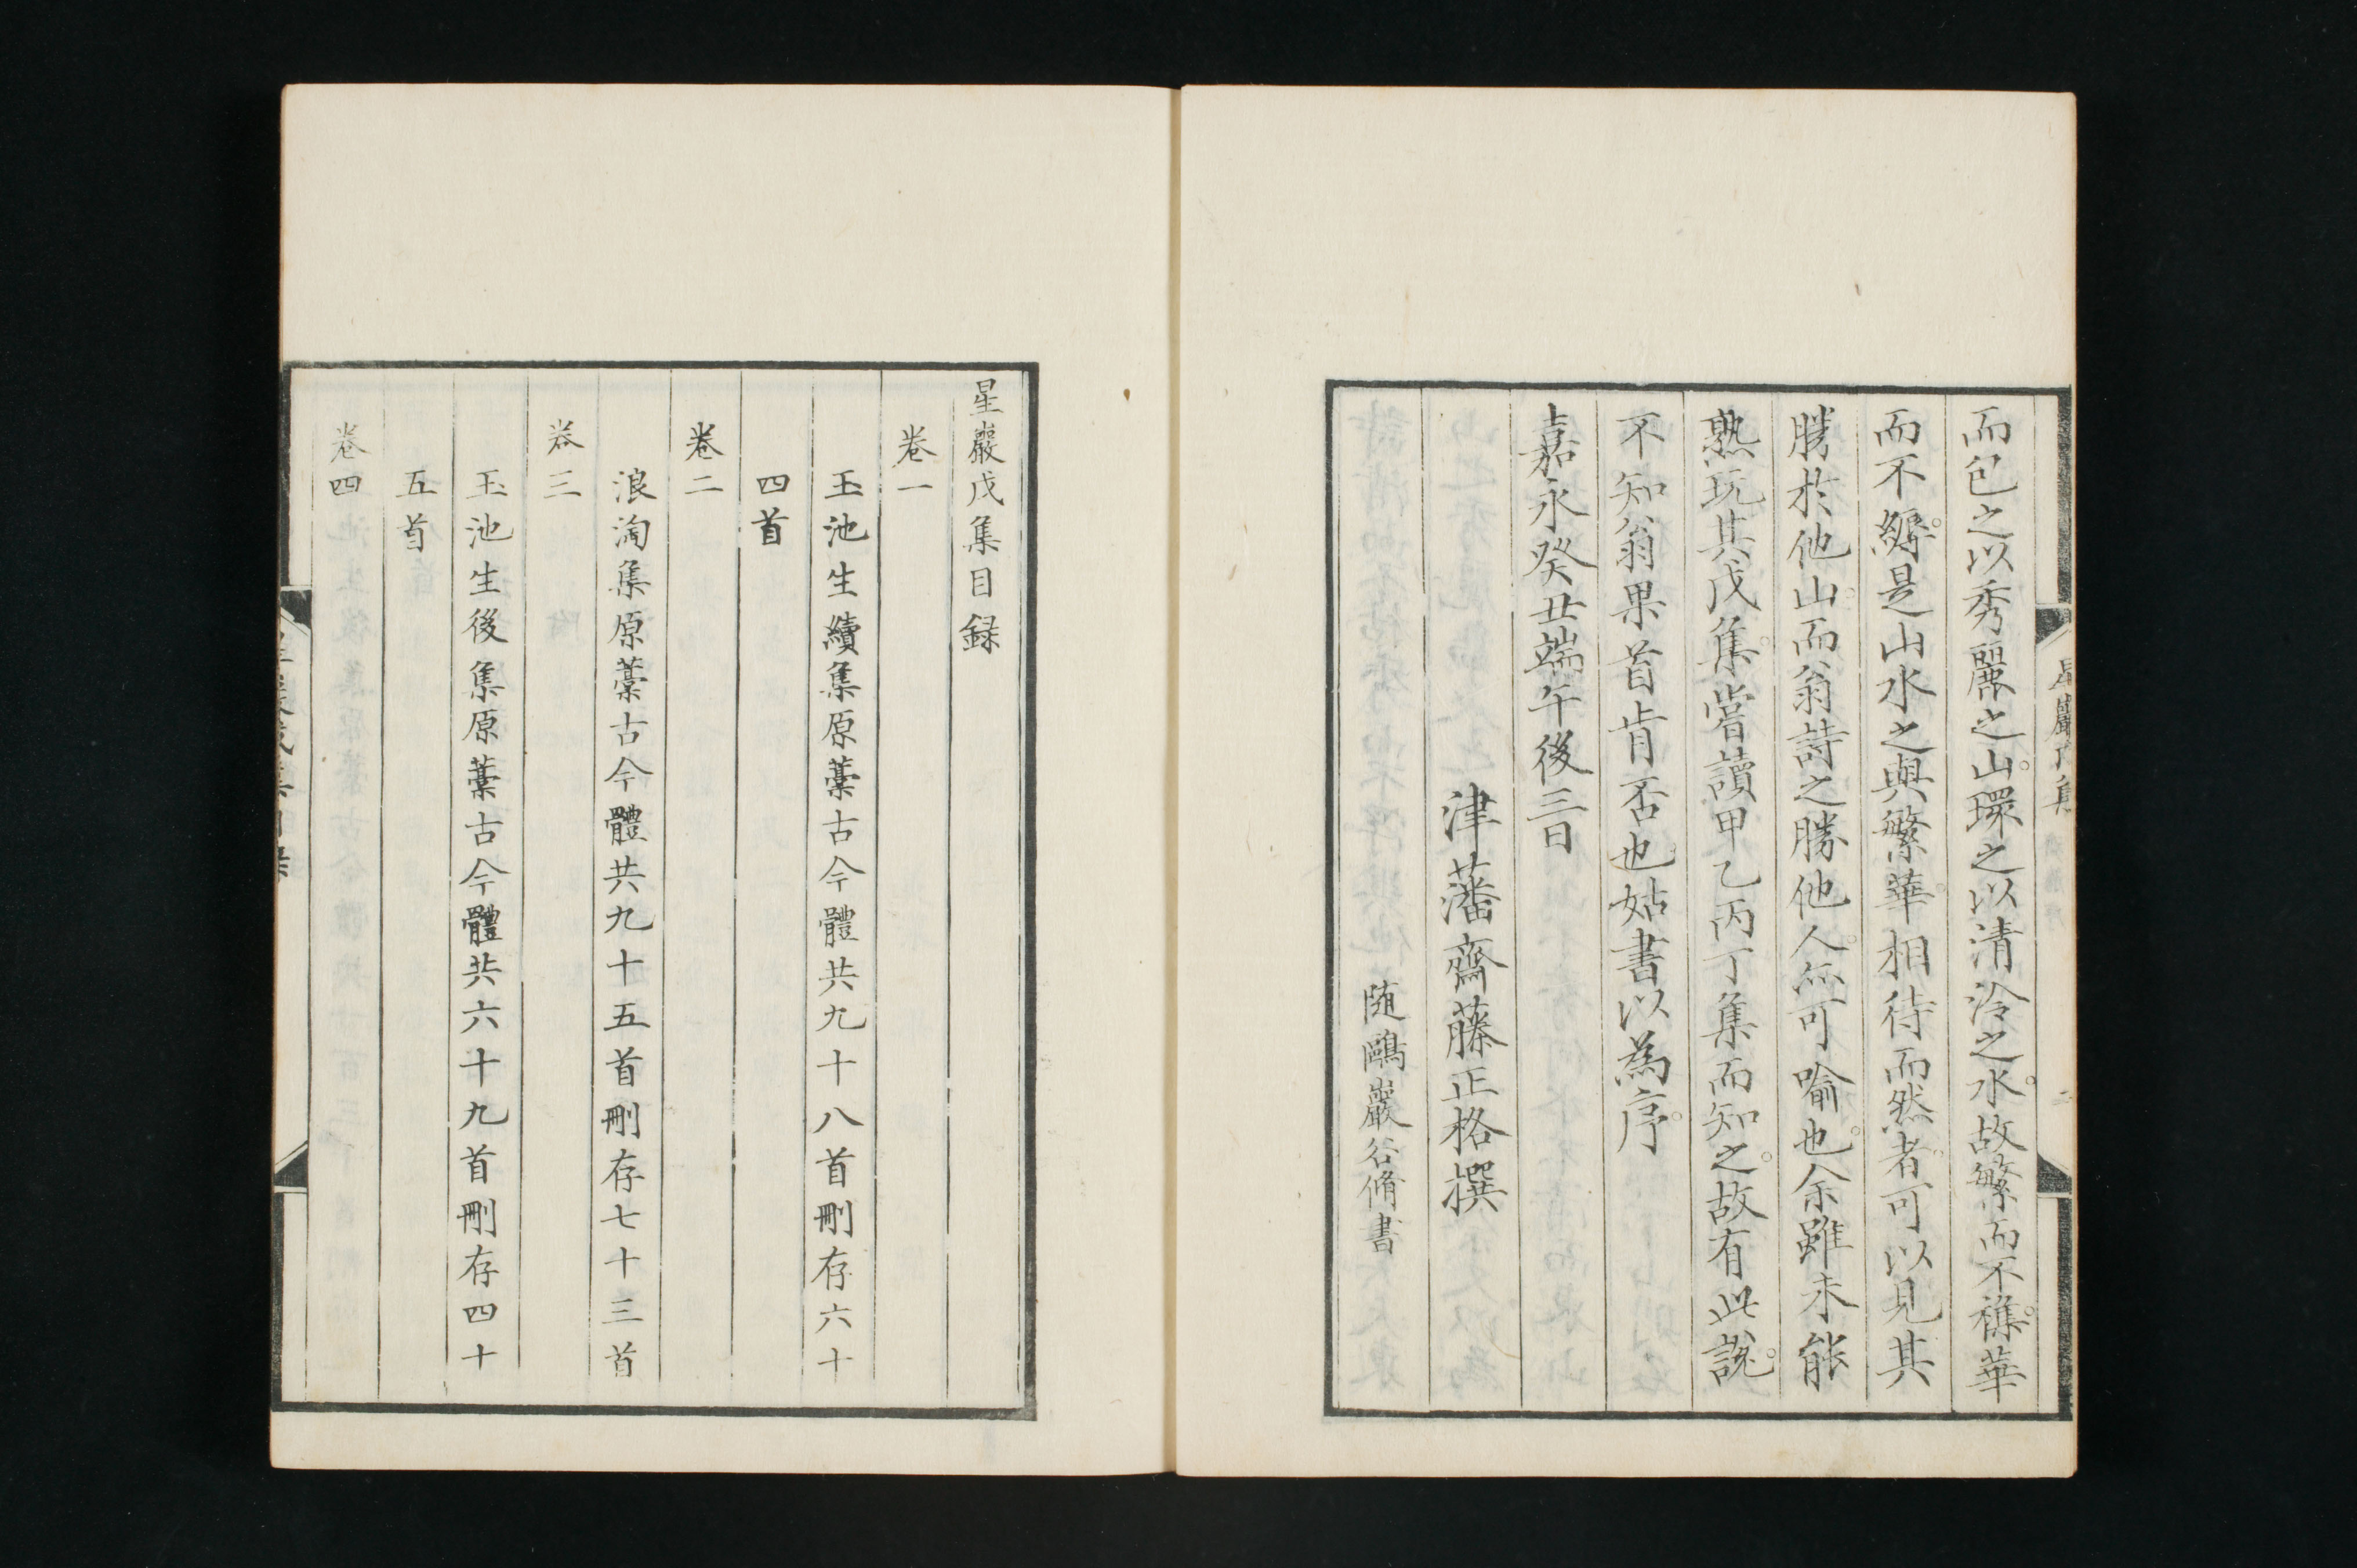 而包之以秀麗之山。環之以清泠之水。故繁而不穠。華
而不縟。是山水之與繁華。相待而然者。可以見其
勝於他山。而翁詩之勝他人。亦可喻也。余雖未能
熟玩其戊集。嘗讀甲乙丙丁集而知之。故有此說。
不知翁果首肯否也。姑書以為序。
嘉永癸丑端午後三日
津藩齋藤正格撰
随鷗巖谷脩書
星巖戊集目録
卷一
玉池生續集原藁古今體共九十八首刪存六十
四首
卷二
浪淘集原藁古今體共九十五首刪存七十三首
卷三
玉池生後集原藁古今體共六十九首刪存四十
五首
卷四